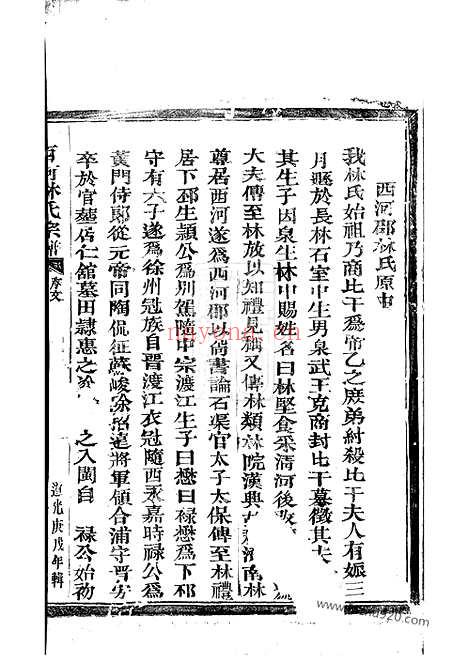 西河郡林氏原由
我林氏始祖乃商比干爲帝乙之庶弟紂殺比干夫人有娠三
月逃於長林石室中生男泉武王克商封比干墓徵其夫
其生子因泉生林中賜姓名曰林堅食采清河後改
大夫傳至林放以知禮見稱又傳林類林院漢興 濟南林
尊居西河遂爲西河郡以尚書論石渠官太子太保傳至林禮
居下邳生頴公爲别駕隨中宗渡江生子曰懋曰禄懋爲下邳
守有六子遂爲徐州冠族自晋渡江衣冠隨西 永嘉時禄公爲
黄門侍郎從元帝同陶侃征蘇峻徐 遠將軍領合浦守晋安
卒於官塟居仁舘墓田 惠之 之入閩自 禄公始初
西河林氏宗譜 序文
道光庚戌年輯
ngyong.cn
www.eshufa920.com